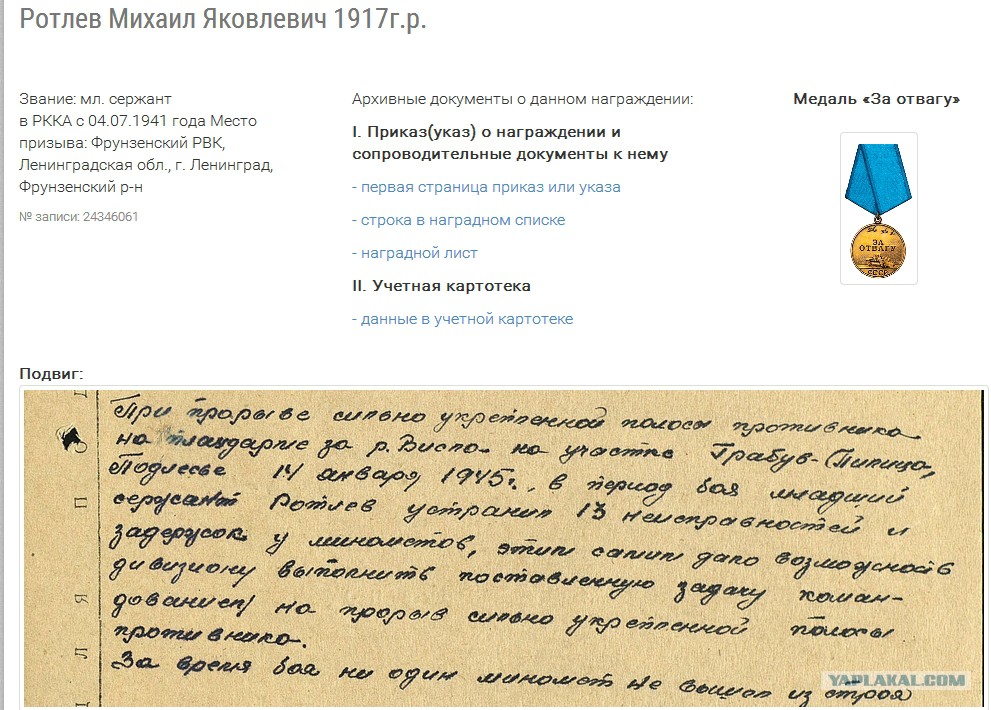 Ротлев Михаил Яковлевич 1917г.р.
Звание: мл. сержант
в РККА с 04.07.1941 года Место
призыва: Фрунзенский РВК,
Ленинградская обл., г. Ленинград,
Фрунзенский р-н
№ записи: 24346061
Архивные документы о данном награждении:
I. Приказ(указ) о награждении и
сопроводительные документы к нему
- первая страница приказ или указа
- строка в наградном списке
- наградной лист
II. Учетная картотека
- данные в учетной картотеке
Медаль «За отвагу»
ЗА
ОТВАГУ
СССР
Подвиг:
При прорыве сильно укрепленной полосы противника
на плацдарме за р. Висла на участке Грабув-(Липица,
Подлесье 14 января 1945г., в период боя младший
сержант Ротлев устранил 13 неисправностей и
задержок у минометов, этим самим дало возможной в
дивизиону выполнить поставленную задачу коман-
дованием на прорыв сильно укрепленной полосы
противника.
За время боя ни один миномет не вышел из строя
YAPLAKAL.COM